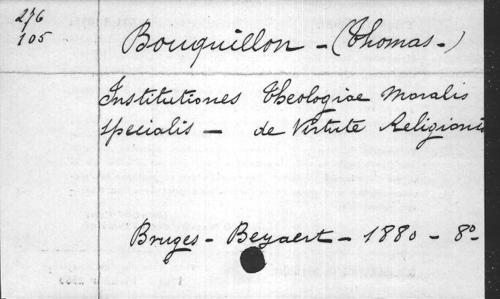 276
105
Bouquillon - (Thomas-)
Institutiones Theologiae Moralis
specialis - de Virtute Religionis
Bruges - Beyaert - 1880 - 8º